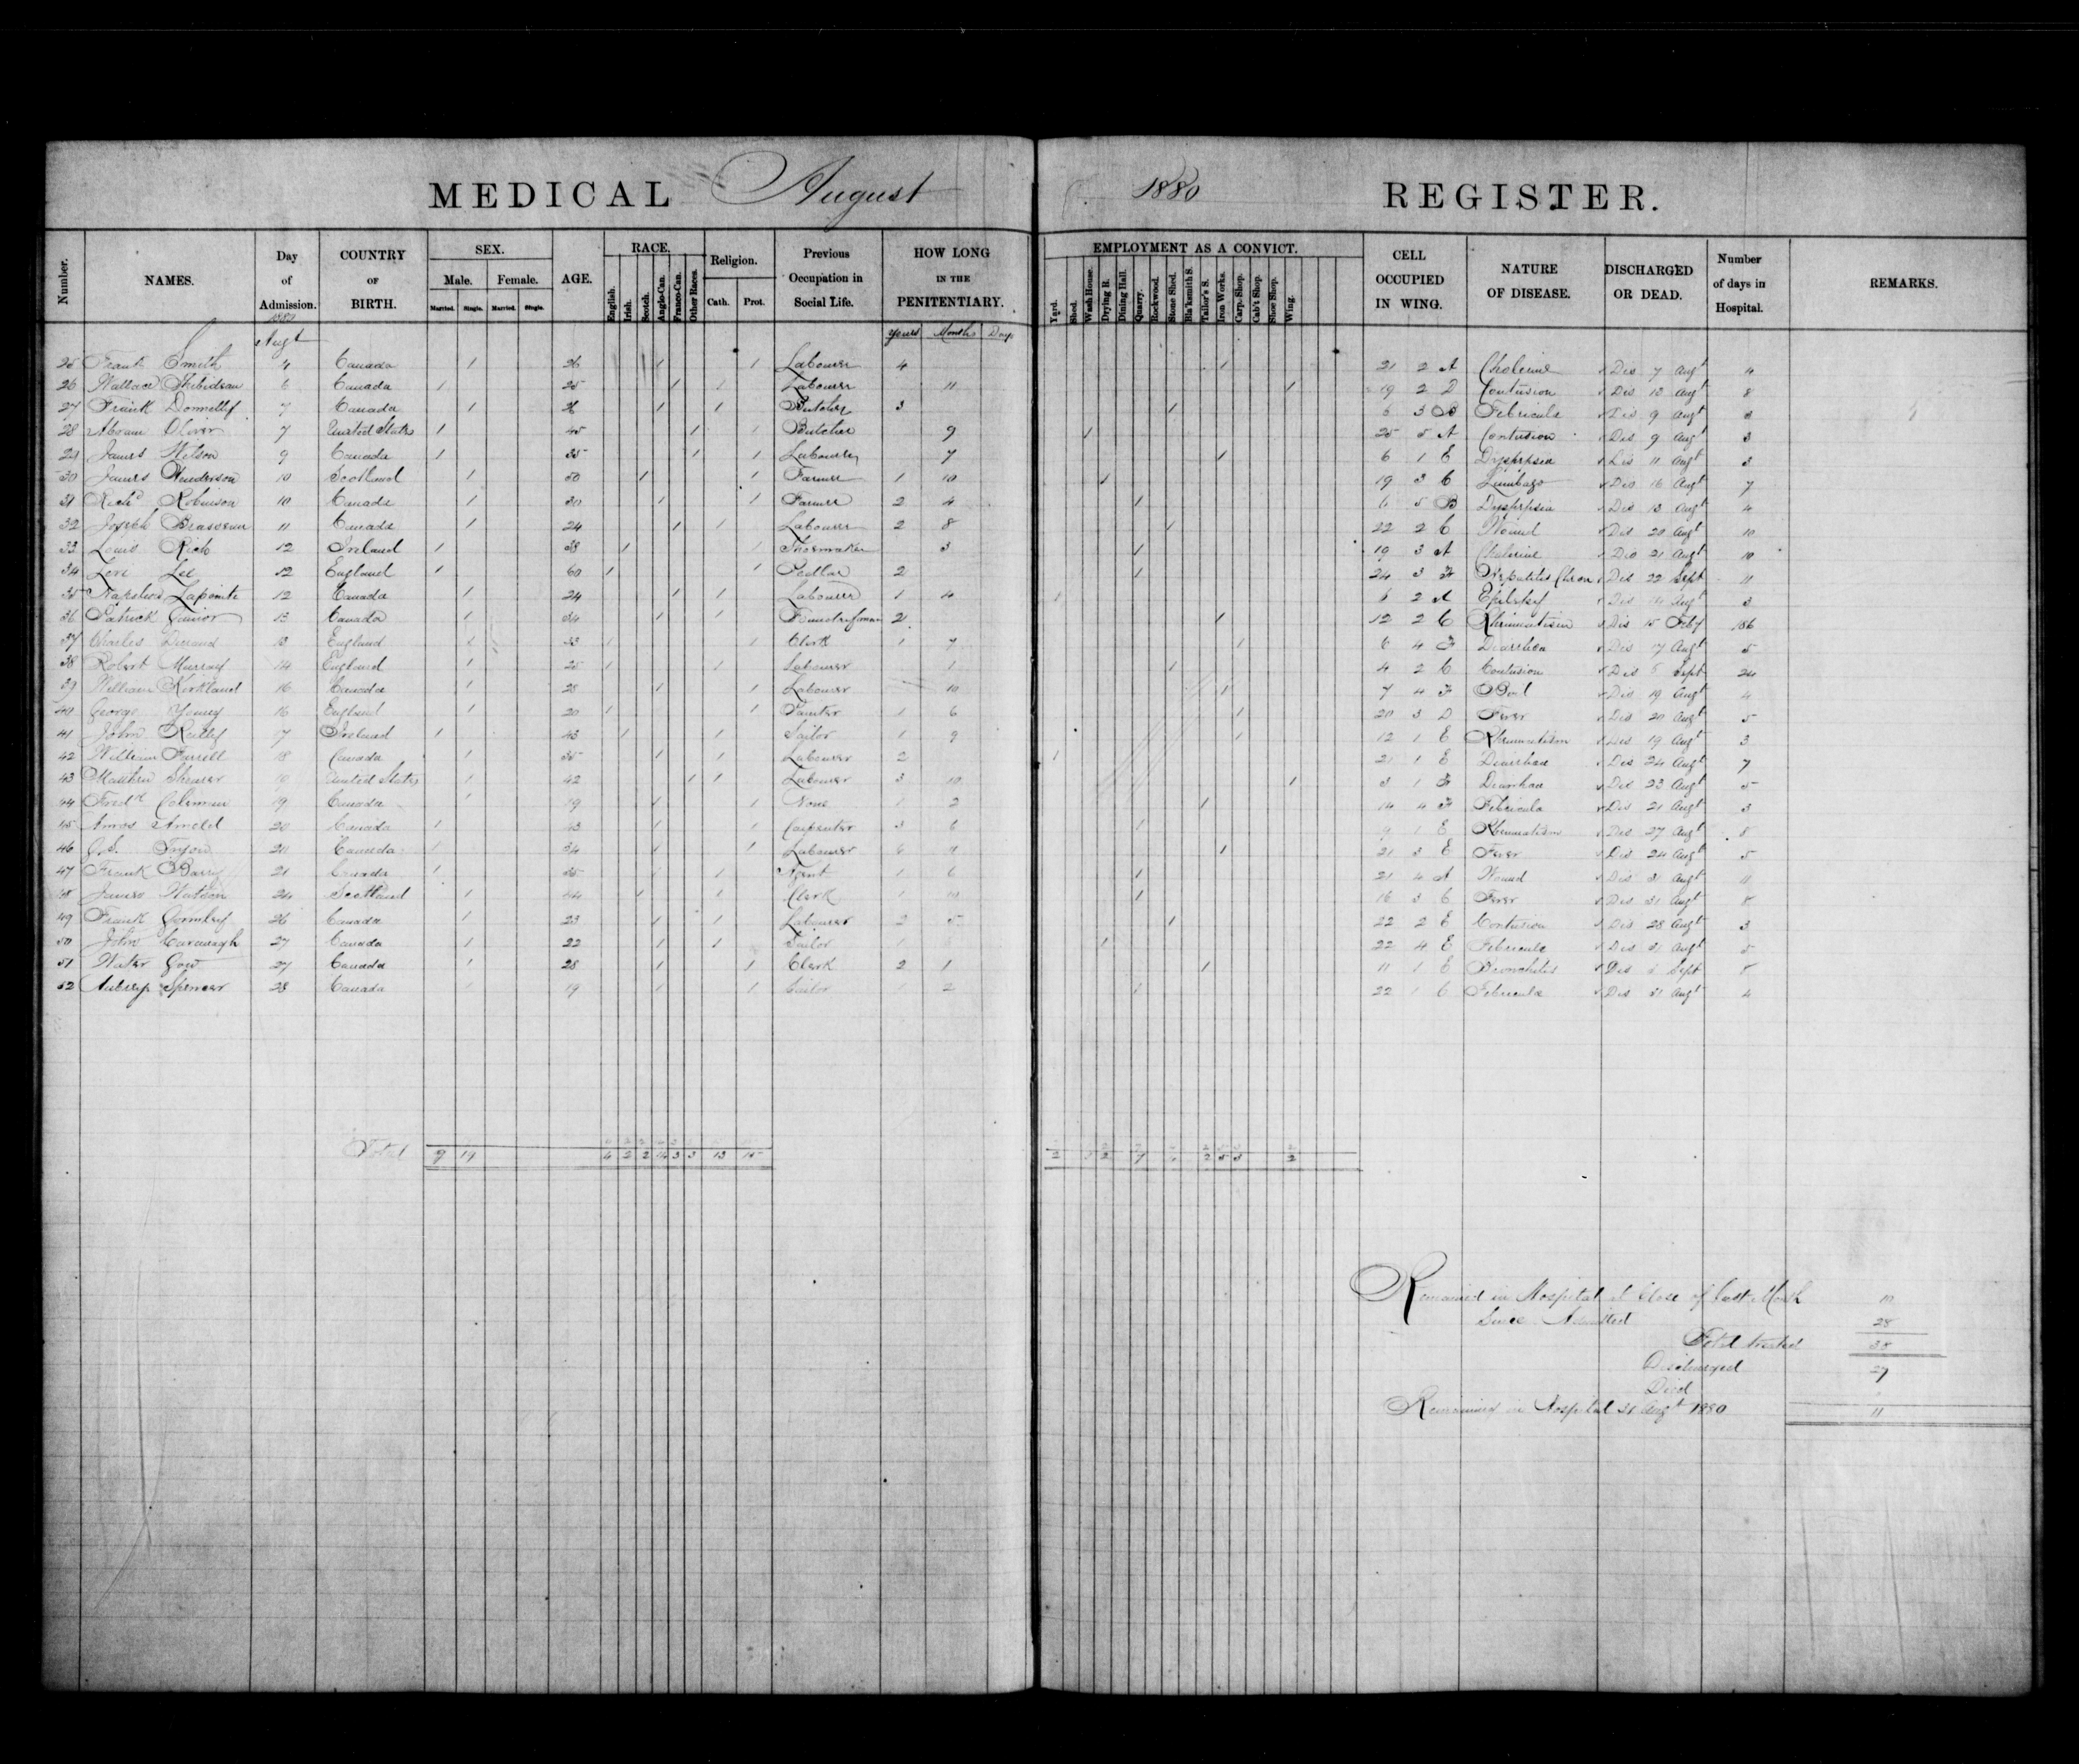 MEDICAL August 1880 REGISTER.
Number. NAMES. Day of Admission. COUNTRY OF BIRTH. SEX. Male. Female. Married. Single. Married. Single. AGE. RACE. English. Irish. Scotch. Anglo-Can. Franco-Can. Other Races. Religion. Cath. Prot. Previous Occupation in Social Life. HOW LONG IN THE PENITENTIARY. EMPLOYMENT AS A CONVICT. Yard. Shed. Wash House. Drying R. Dining Hall. Quarry. Rockwood. Stone Shed. Bla'ksmith S. Tailor's S. Iron Works. Carp. Shop. Cab't Shop. Shoe Shop. Wing. CELL OCCUPIED IN WING. NATURE OF DISEASE. DISCHARGED OR DEAD. Number of days in Hospital. REMARKS.
1880 Augt Years Months Days
25 Frank Smith 4 Canada 1 26 1 1 Labourer 4 1 21 2 A Cholerine Dis 7 Augt 4
26 Wallace 6 Canada 1 25 1 1 Labourer 11 1 19 2 D Contusion Dis 13 Augt 8
27 Frank Donnelly 7 Canada 1 26 1 1 Butcher 3 1 6 3 B Febricula Dis 9 Augt 3
28 Abram Oliver 7 United States 1 45 1 1 Butcher 9 1 25 5 A Contusion Dis 9 Augt 3
29 James Wilson 9 Canada 1 35 1 1 Labourer 7 1 6 1 E Dyspepsia Dis 11 Augt 3
30 James Henderson 10 Scotland 1 50 1 1 Farmer 1 10 1 19 3 C Lumbago Dis 16 Augt 7
31 Richd Robinson 10 Canada 1 30 1 1 Farmer 2 4 1 6 5 B Dyspepsia Dis 13 Augt 4
32 Joseph 11 Canada 1 24 1 1 Labourer 2 8 1 22 2 C Wound Dis 20 Augt 10
33 Louis Rich 12 Ireland 1 38 1 1 Shoemaker 3 1 19 3 A Cholerine Dis 21 Augt 10
34 Levi Lee 12 England 1 60 1 1 Pedlar 2 1 24 3 F Hepatitis Chron Dis 22 Sept 11
35 Napoleon Lapointe 12 Canada 1 24 1 1 Labourer 1 4 1 6 2 A Epilepsy Dis 14 Augt 3
36 Patrick 13 Canada 1 34 1 1 2 1 12 2 C Rheumatism Dis 15 Feby 186
37 Charles Durand 13 England 1 33 1 1 Clerk 1 7 1 6 4 F Diarrhea Dis 17 Augt 5
38 Robert Murray 14 England 1 25 1 1 Labourer 1 1 4 2 C Contusion Dis Sept 24
39 William Kirkland 16 Canada 1 28 1 1 Labourer 10 1 7 4 F Boil Dis 19 Augt 4
40 George Young 16 England 1 20 1 1 Painter 1 6 1 20 3 D Fever Dis 20 Augt 5
41 John Reilly 17 Ireland 1 43 1 1 Tailor 1 9 1 12 1 E Rheumatism Dis 19 Augt 3
42 William Farrell 18 Canada 1 35 1 1 Labourer 2 1 21 1 E Diarrhea Dis 24 Augt 7
43 Matthew Shearer 19 United States 1 42 1 1 Labourer 3 10 1 3 1 F Diarrhea Dis 23 Augt 5
44 Fredk Coleman 19 Canada 1 19 1 1 None 1 2 1 14 4 F Febricula Dis 21 Augt 3
45 Amos Arnold 20 Canada 1 43 1 1 Carpenter 3 6 1 9 1 E Rheumatism Dis 27 Augt 8
46 Tryon 20 Canada 1 34 1 1 Labourer 1 21 3 E Fever Dis 24 Augt 5
47 Frank Barry 21 Canada 1 35 1 1 Agent 1 6 1 21 4 A Wound Dis 31 Augt 11
48 James Watson 24 Scotland 1 44 1 1 Clerk 1 10 1 16 3 C Fever Dis 31 Augt 8
49 Frank Gormley 26 Canada 1 23 1 1 Labourer 2 5 1 22 2 E Contusion Dis 28 Augt 3
50 John Cavanagh 27 Canada 1 22 1 1 Tailor 1 1 22 4 E Febricula Dis 31 Augt 5
51 Walter Gow 27 Canada 1 28 1 1 Clerk 2 1 1 11 1 E Bronchitis Dis Sept 8
52 Aubrey Spencer 28 Canada 1 19 1 1 Tailor 1 2 1 22 1 C Febricula Dis 31 Augt 4
Total 9 19 4 2 2 14 3 3 13 15 2 2 7 2 5 3 2
Remained in Hospital at Close of last Month 10
Since Admitted 28
Total treated 38
Discharged 27
Died
Remaining in Hospital 31 Augt 1880 11